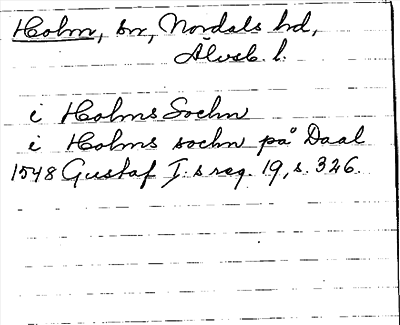 Holm, sn, Nordals hd,
Älvsb. l.
i Holms Sochn
i Holms sochn på Daal
1548 Gustaf I:s reg. 19, s. 326.